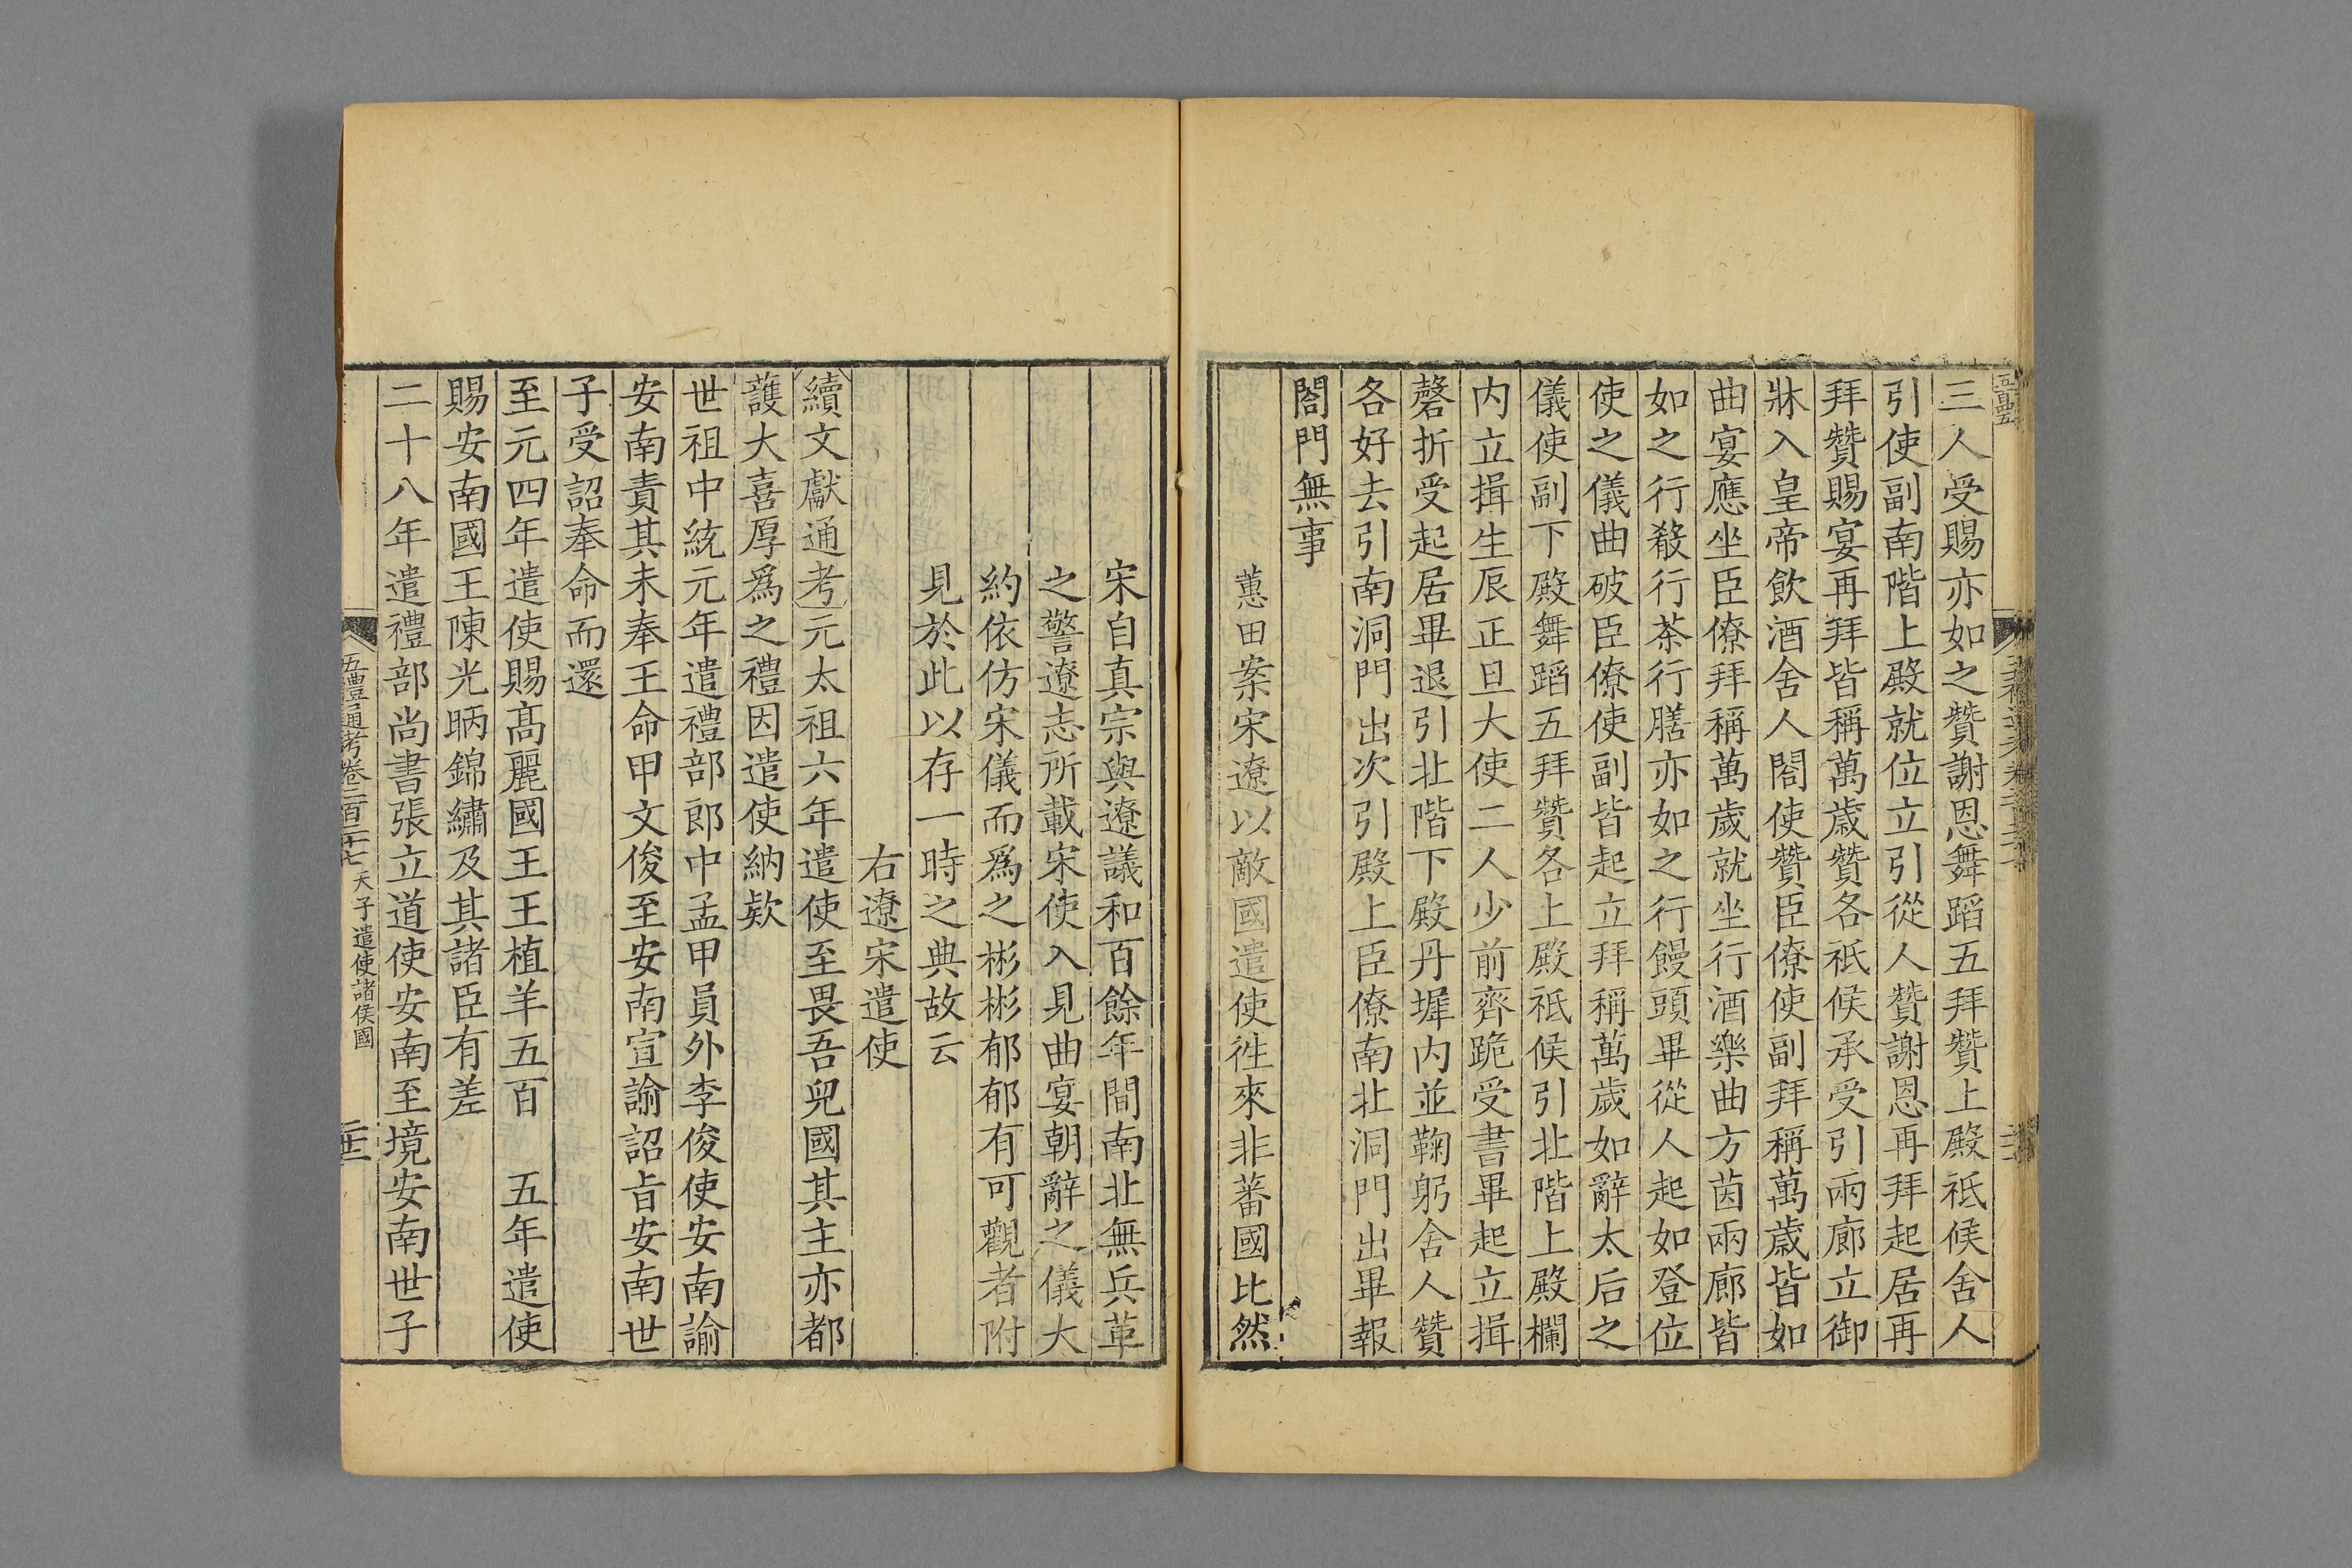 三人受賜亦如之贊謝恩舞蹈五拜贊上殿祗候舍人
引使副南階上殿就位立引從人贊謝恩再拜起居再
拜贊賜宴再拜皆稱萬歲贊各祗候承受引兩廊立御
牀入皇帝飲酒舍人閤使贊臣僚使副拜稱萬歲皆如
曲宴應坐臣僚拜稱萬歲就坐行酒樂曲方茵兩廊皆
如之行殽行茶行膳亦如之行饅頭畢從人起如登位
使之儀曲破臣僚使副皆起立拜稱萬歲如辭太后之
儀使副下殿舞蹈五拜贊各上殿祗候引北階上殿欄
内立揖生辰正旦大使二人少前齊跪受書畢起立揖
磬折受起居畢退引北階下殿丹墀内並鞠躬舍人贊
各好去引南洞門出次引殿上臣僚南北洞門出畢報
閤門無事
蕙田案宋遼以敵國遣使徃來非蕃國比然
宋自真宗與遼議和百餘年間南北無兵革
之警遼志所載宋使入見曲宴朝辭之儀大
約依仿宋儀而爲之彬彬郁郁有可觀者附
見於此以存一時之典故云
右遼宋遣使
續文獻通考元太祖六年遣使至畏吾兒國其主亦都
護大喜厚爲之禮因遣使納欵
世祖中統元年遣禮部郎中孟甲員外李俊使安南諭
安南責其未奉王命甲文俊至安南宣諭詔旨安南世
子受詔奉命而還
至元四年遣使賜髙麗國王王植羊五百　五年遣使
賜安南國王陳光昞錦繡及其諸臣有差
二十八年遣禮部尚書張立道使安南至境安南世子
五禮通考卷二百二十七　天子遣使諸侯國